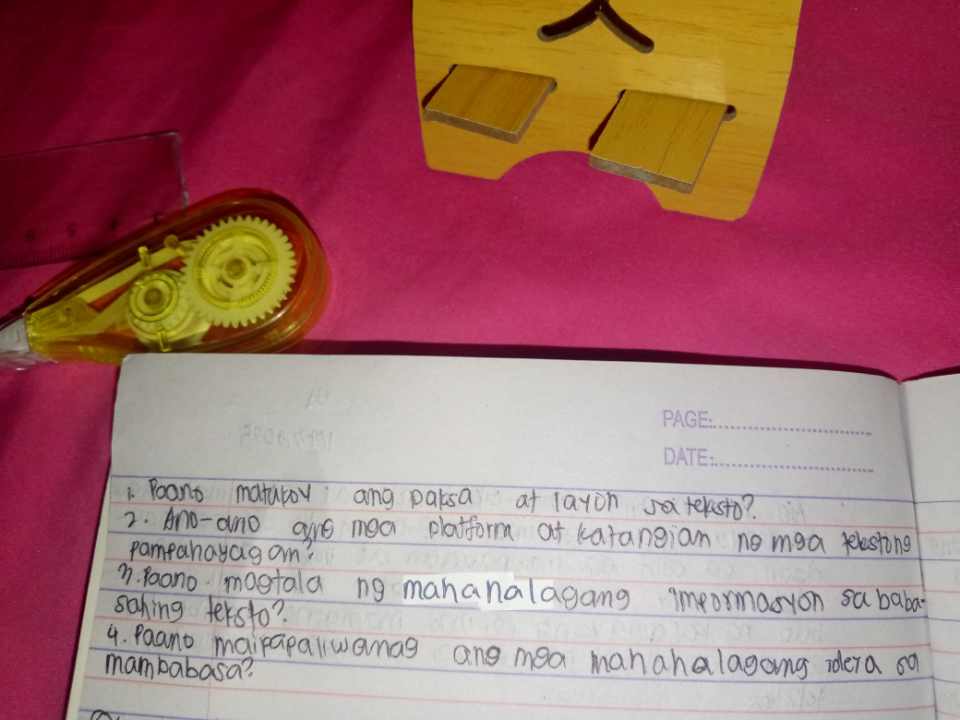 PAGE:
DATE:
1. Paano matukoy ang paksa at layon sa teksto?
2. Ano-ano ang mga platform at katangian ng mga tekstong
pampahayagan?
3. Paano magtala ng mahahalagang impormasyon sa baba-
sahing teksto?
4. Paano maipapaliwanag ang mga mahahalagang ideya sa
mambabasa?